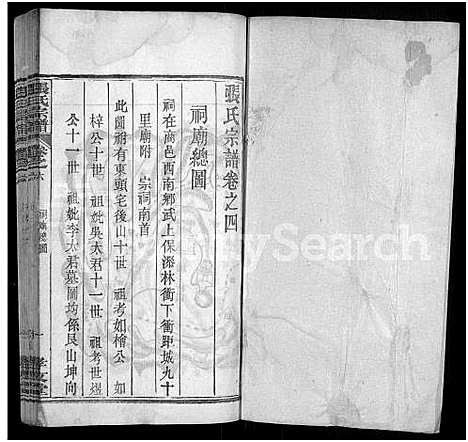 張氏宗譜卷之四
祠廟總圖
祠在商邑西南鄉武上保深林衝下衝距城九十
里廟附 崇祠南首
此圖祠有東頭宅後山十世 祖考如檜公 如
梓公十世 祖妣吳太君十一世 祖考世煜
公十一世 祖妣李太君墓圖均係艮山坤向
張氏宗譜
祠廟總圖
一
孝友堂
Search